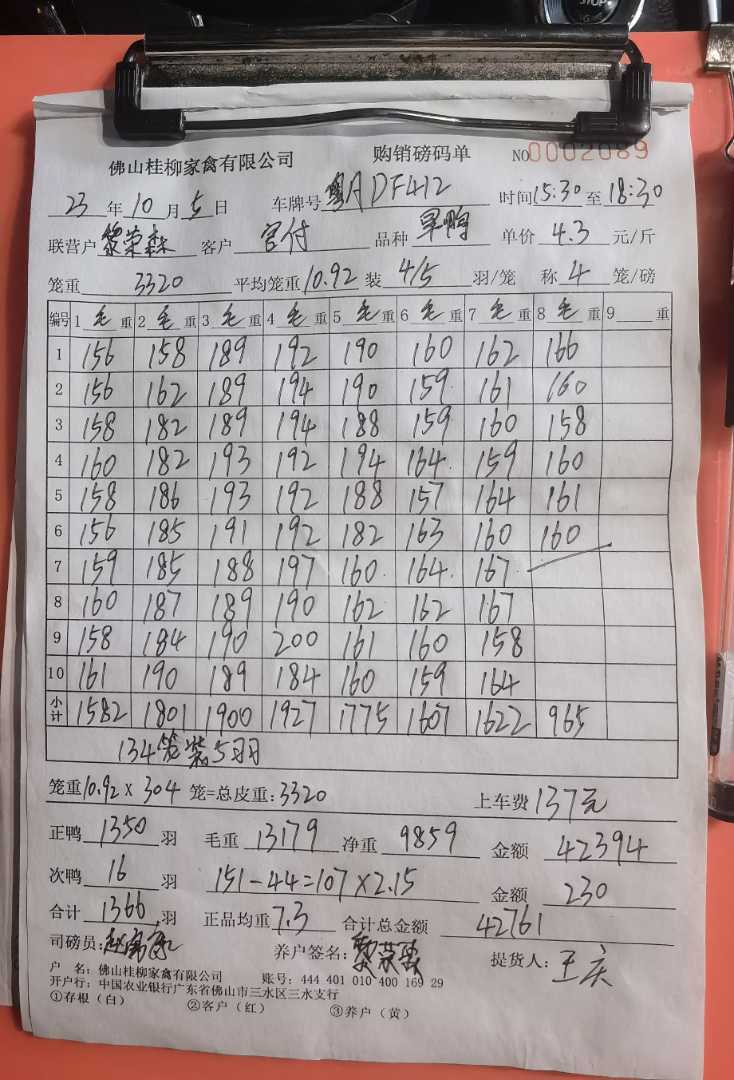 STOP
佛山桂柳家禽有限公司 购销磅码单 NO0002089
23年10月5日 车牌号粤ADF412 时间15:30至18:30
联营户黎荣森 客户宫付 品种旱鸭 单价4.3元/斤
笼重3320 平均笼重10.92装4/5羽/笼 称4笼/磅
编号 1毛重 2毛重 3毛重 4毛重 5毛重 6毛重 7毛重 8毛重 9重
1 156 158 189 192 190 160 162 166
2 156 162 189 194 190 159 161 160
3 158 182 189 194 188 159 160 158
4 160 182 193 192 194 164 159 160
5 158 186 193 192 188 157 164 161
6 156 185 191 192 182 163 160 160
7 159 185 188 197 160 164 167
8 160 187 189 190 162 162 167
9 158 184 190 200 161 160 158
10 161 190 189 184 160 159 164
小计 1582 1801 1900 1927 1775 1607 1622 965
134笼装5羽
笼重10.92×304笼=总皮重:3320 上车费137元
正鸭1350羽 毛重13179净重9859 金额42394
次鸭16羽 151-44=107×2.15 金额230
合计1366羽 正品均重7.3 合计总金额42761
司磅员: 养户签名:黎荣森 提货人:王庆
户 名:佛山桂柳家禽有限公司 账号:444 401 010 400 169 29
开户行:中国农业银行广东省佛山市三水区三水支行
①存根(白) ②客户(红) ③养户(黄)